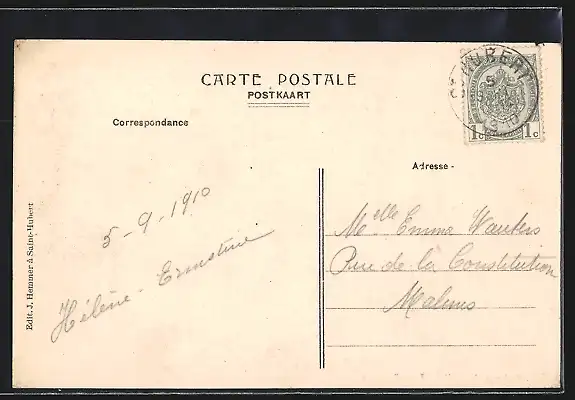 CARTE POSTALE
POSTKAART
Correspondance
Adresse -
5-9-1910
Hélène - Ernestine
Melle Emma Wauters
Rue de la Constitution
Malines
Edit. J. Hemmer à Saint-Hubert
HUBERT
5
1c 1c